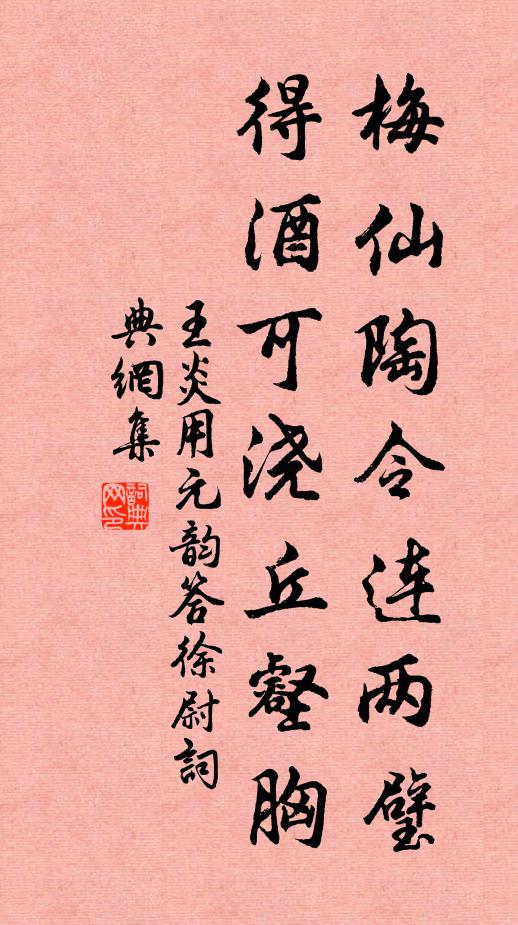 梅仙陶令连两璧
得酒可浇丘壑胸
王炎用元韵答徐尉詞
典網集
詞典
网印